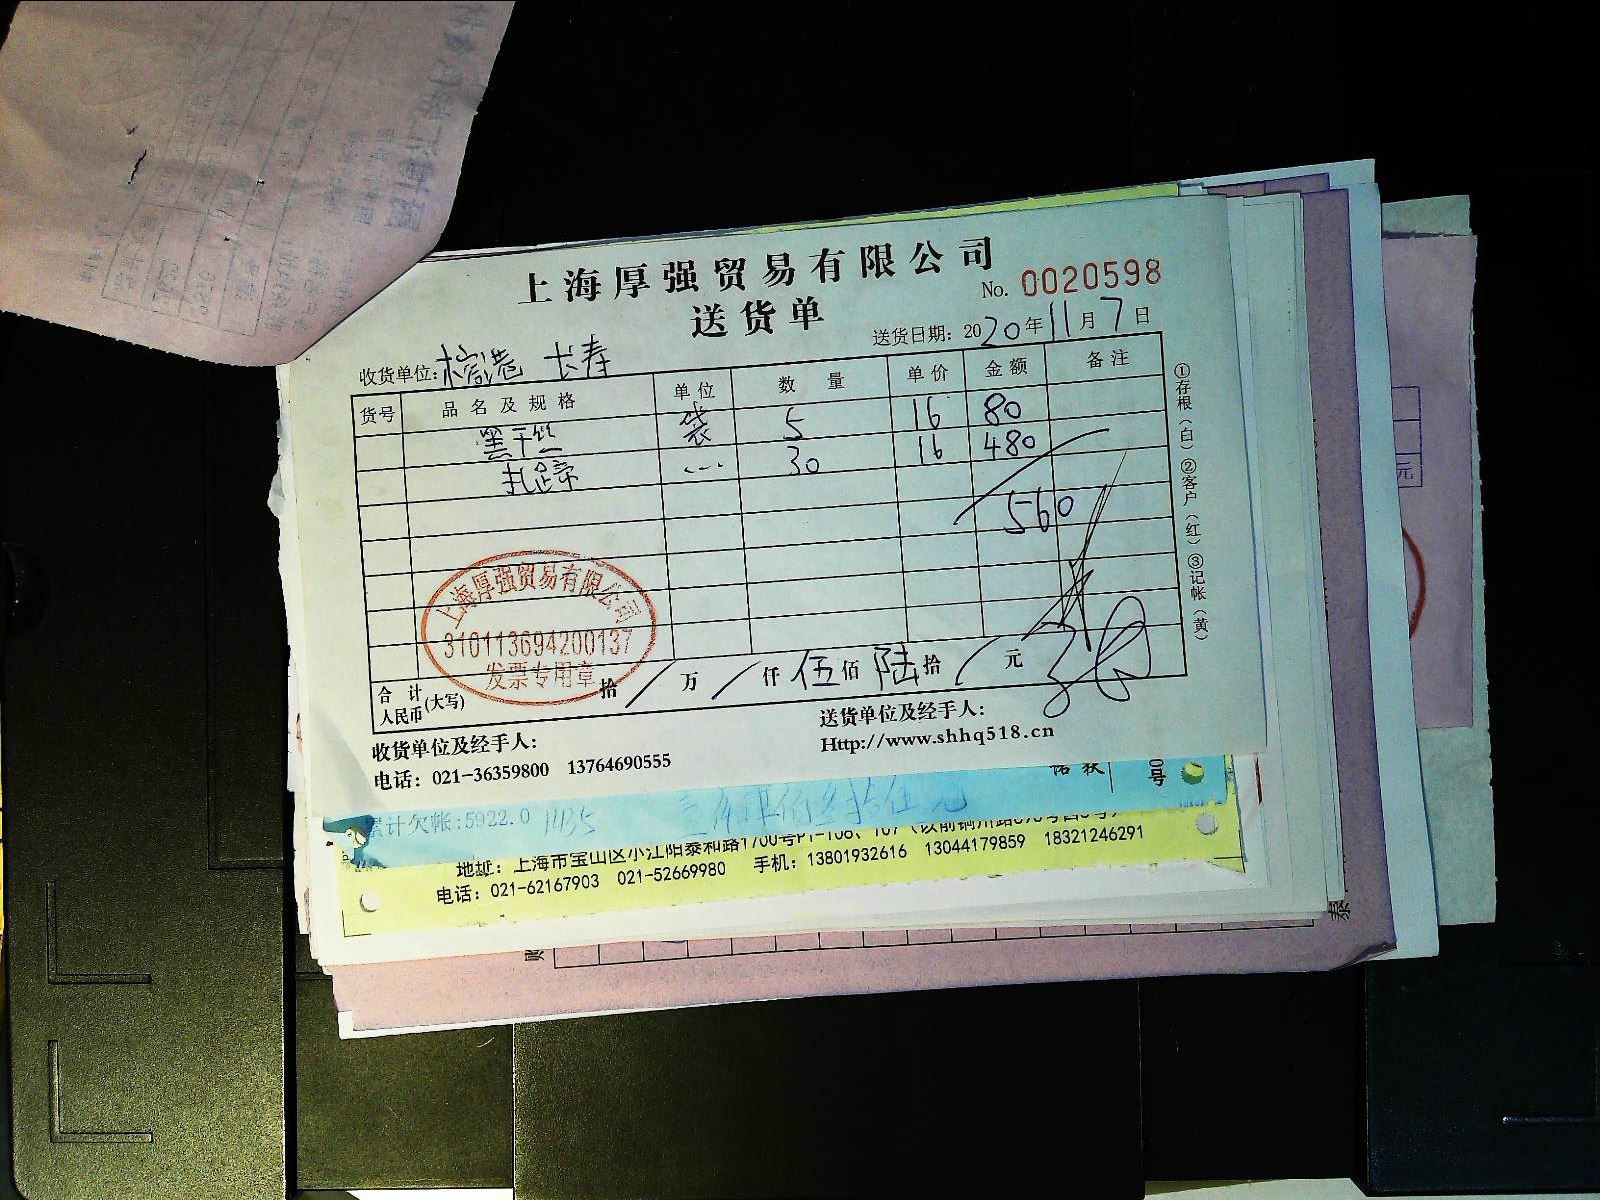 上海厚强贸易有限公司
No. 0020598
送货单
送货日期: 2020年11月7日
收货单位: 长寿
货号 品名及规格 单位 数量 单价 金额 备注
黑干丝 袋 5 16 80
扎蹄 … 30 16 480
560
上海厚强贸易有限公司
310113694200137
发票专用章
合计人民币(大写) 拾 / 万 / 仟 伍 佰 陆 拾 / 元
①存根(白)②客户(红)③记帐(黄)
收货单位及经手人:
送货单位及经手人:
电话: 021-36359800 13764690555
Http://www.shhq518.cn
累计欠帐:5922.0 1435
地址: 上海市宝山区小江阳泰和路1700号
电话: 021-62167903 021-52669980 手机: 13801932616 13044179859 18321246291
元
泰